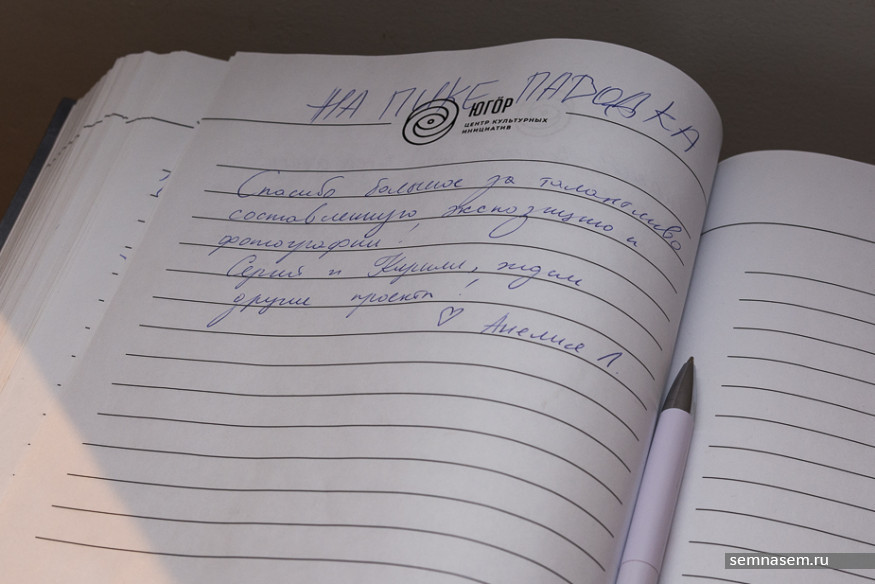 НА ПИКЕ ПАВОДКА
ЮГӦР
ЦЕНТР КУЛЬТУРНЫХ
ИНИЦИАТИВ
Спасибо большое за талантливо
составленную экспозицию и
фотографии!
Сергей и Кирилл, ждём
другие проекты!
♡ Анелия Л.
semnasem.ru